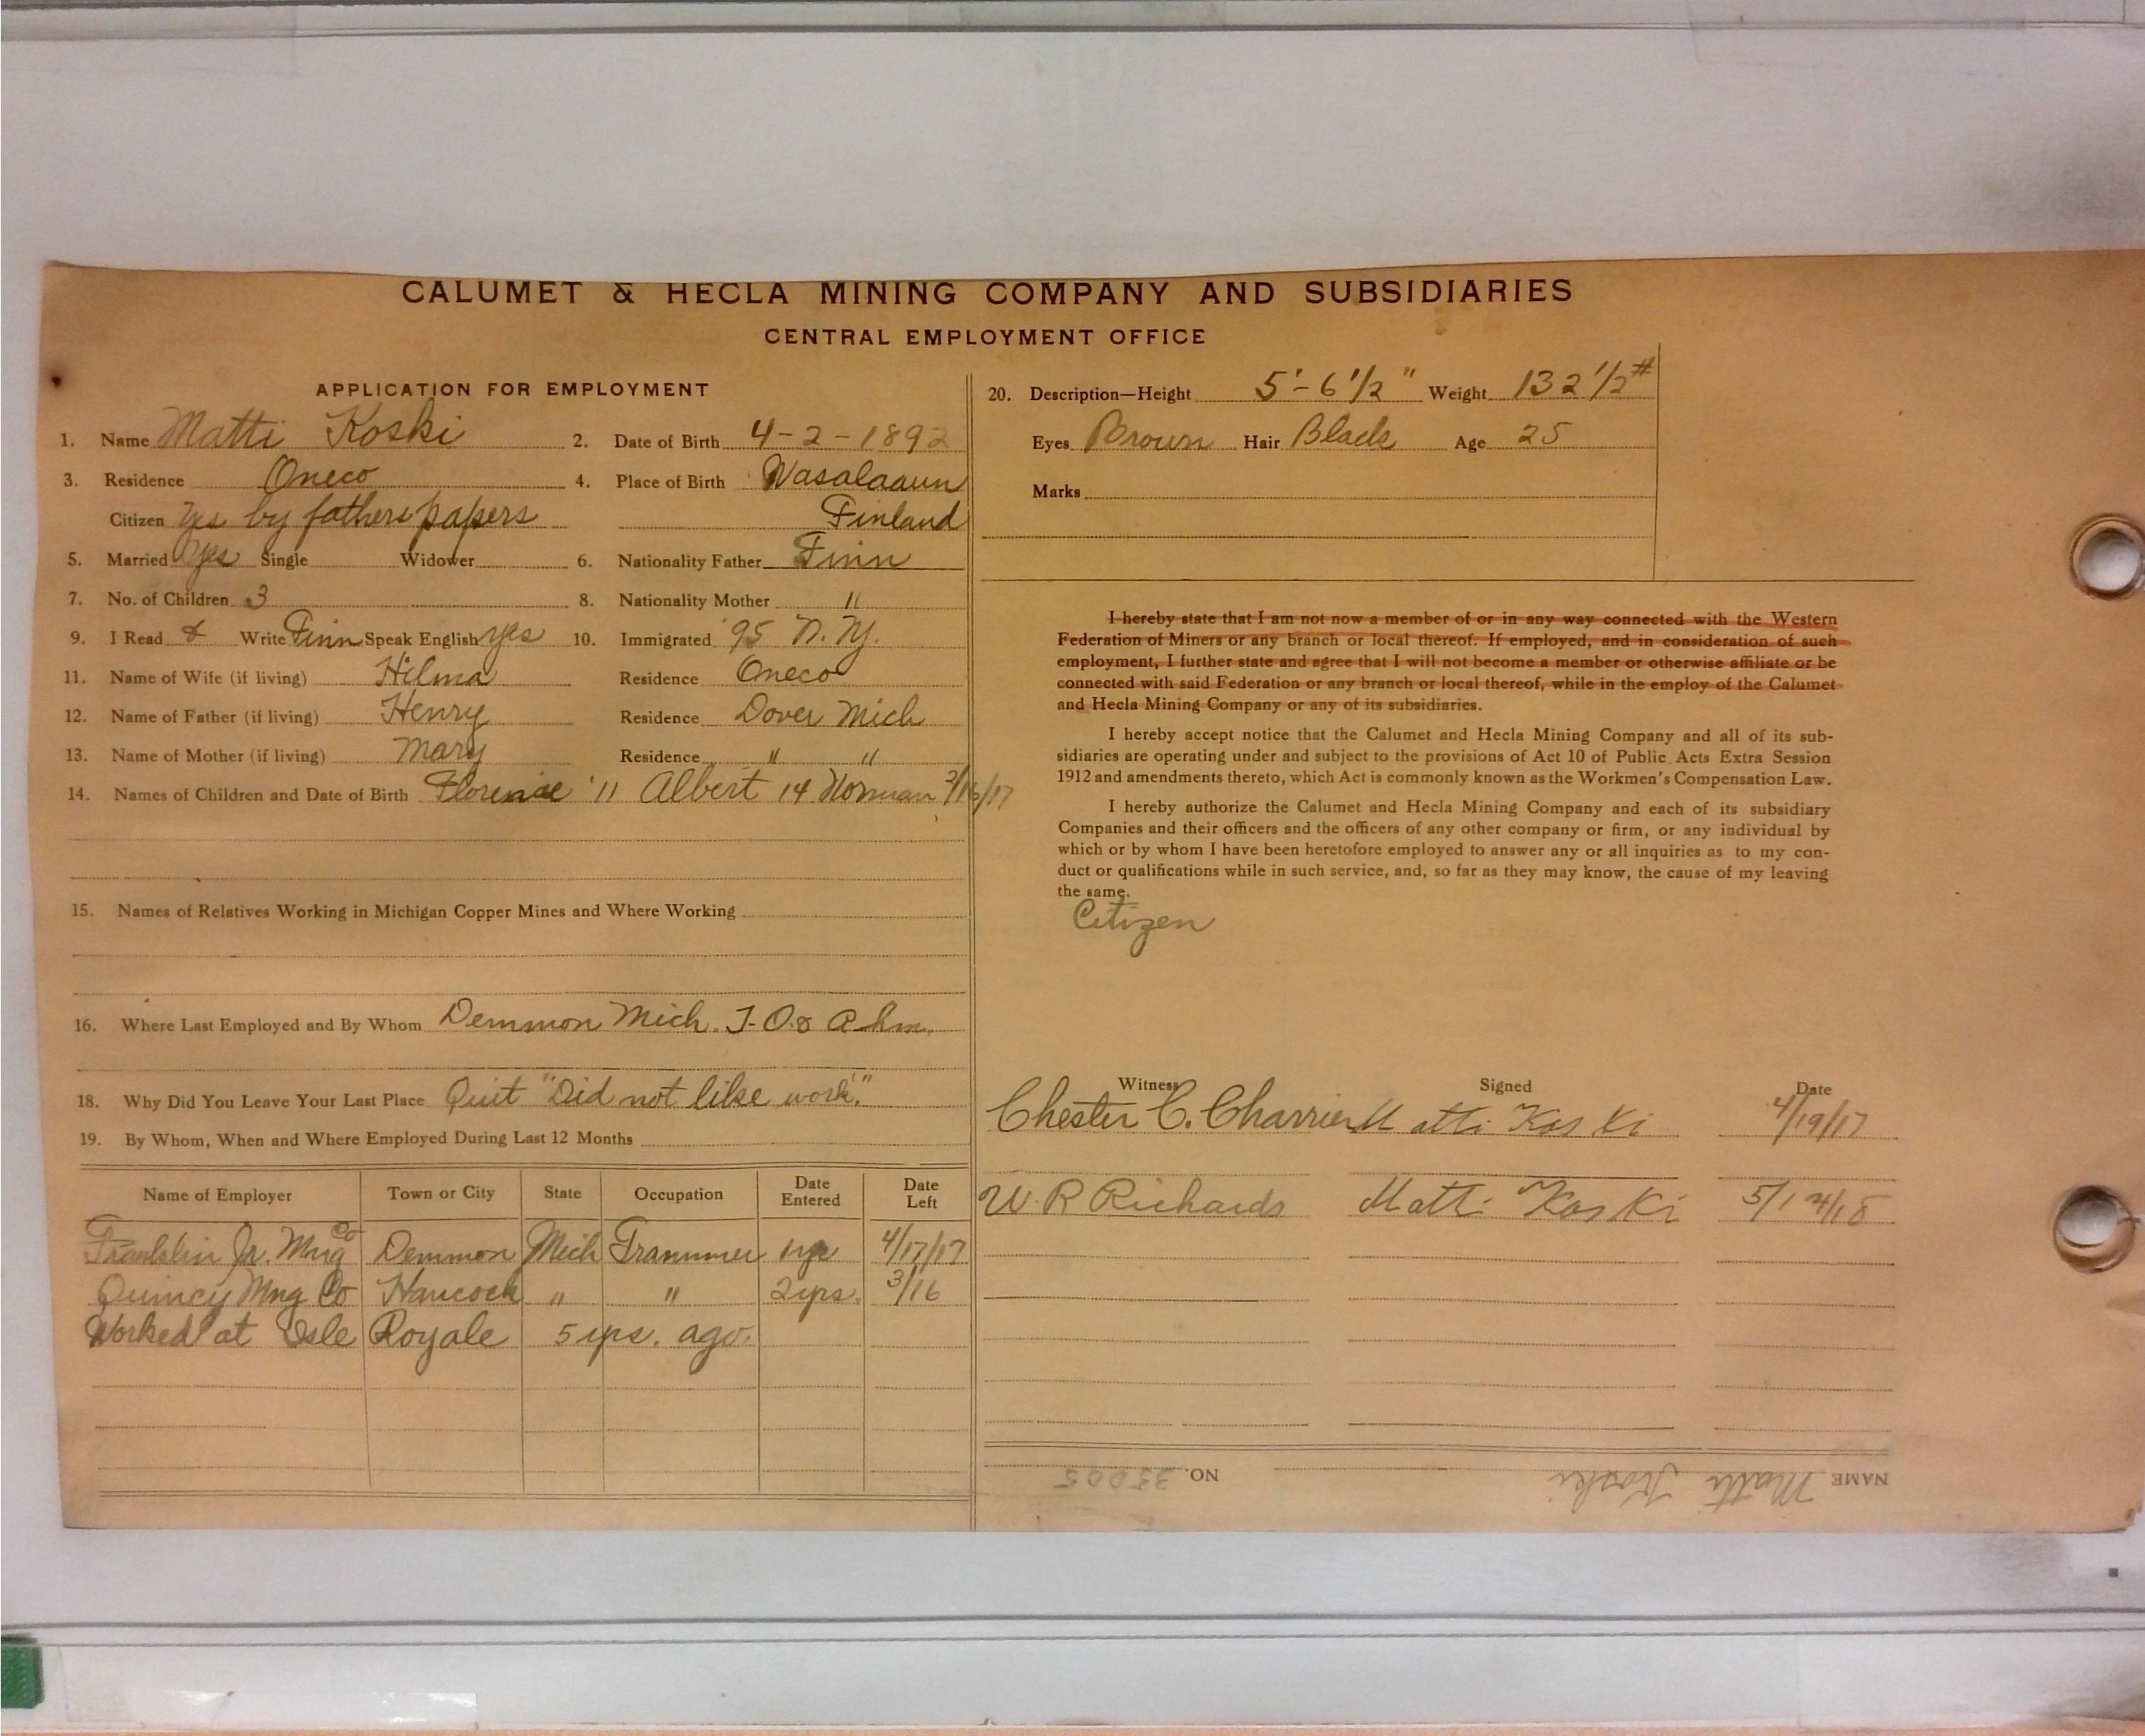 CALUMET & HECLA MINING COMPANY AND SUBSIDIARIES
CENTRAL EMPLOYMENT OFFICE
APPLICATION FOR EMPLOYMENT
1. Name Matti Koski 2. Date of Birth 4-2-1892
3. Residence Oneco 4. Place of Birth Wasalaaun
Citizen Yes by fathers papers Finland
5. Married Yes Single Widower 6. Nationality Father Finn
7. No. of Children 3 8. Nationality Mother "
9. I Read & Write Finn Speak English yes 10. Immigrated '95 N.Y.
11. Name of Wife (if living) Hilma Residence Oneco
12. Name of Father (if living) Henry Residence Dover Mich
13. Name of Mother (if living) Mary Residence " "
14. Names of Children and Date of Birth Florence '11 Albert 14 Norman 3/16/17
15. Names of Relatives Working in Michigan Copper Mines and Where Working
16. Where Last Employed and By Whom Demmon Mich.
18. Why Did You Leave Your Last Place Quit "Did not like work."
19. By Whom, When and Where Employed During Last 12 Months
Name of Employer Town or City State Occupation Date Entered Date Left
Franklin Jr. Mng Co Demmon Mich Trammer 1 yr 4/17/17
Quincy Mng Co Hancock " " 2 yrs. 3/16
Worked at Isle Royale 5 yrs. ago.
20. Description—Height 5'-6 1/2" Weight 132 1/2 #
Eyes Brown Hair Black Age 25
Marks
I hereby state that I am not now a member of or in any way connected with the Western
Federation of Miners or any branch or local thereof. If employed, and in consideration of such
employment, I further state and agree that I will not become a member or otherwise affiliate or be
connected with said Federation or any branch or local thereof, while in the employ of the Calumet
and Hecla Mining Company or any of its subsidiaries.
I hereby accept notice that the Calumet and Hecla Mining Company and all of its sub-
sidiaries are operating under and subject to the provisions of Act 10 of Public Acts Extra Session
1912 and amendments thereto, which Act is commonly known as the Workmen's Compensation Law.
I hereby authorize the Calumet and Hecla Mining Company and each of its subsidiary
Companies and their officers and the officers of any other company or firm, or any individual by
which or by whom I have been heretofore employed to answer any or all inquiries as to my con-
duct or qualifications while in such service, and, so far as they may know, the cause of my leaving
the same.
Citizen
Witness Signed Date
Chester C. Charrier Matti Koski 4/19/17
W R Richards Matti Koski 5/14/18
NAME Matti Koski NO. 35005